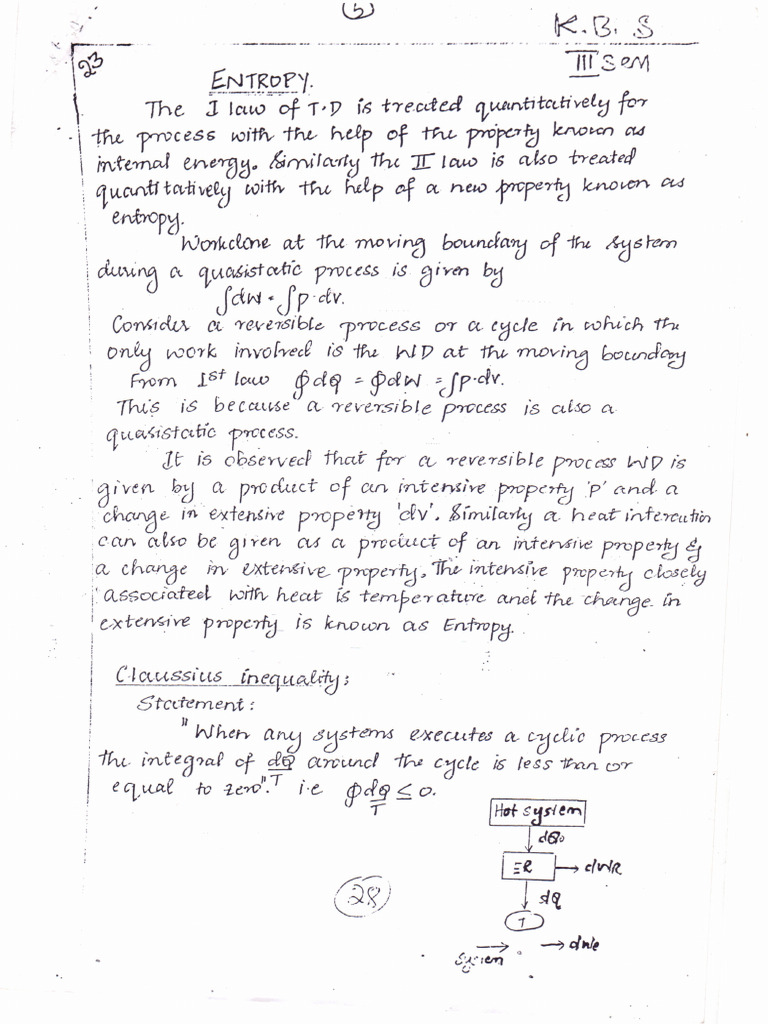 (5)
K.B.S
III Sem
23
ENTROPY.
The I law of T.D is treated quantitatively for
the process with the help of the property known as
internal energy. Similarly the II law is also treated
quantitatively with the help of a new property known as
entropy.
Workdone at the moving boundary of the system
during a quasistatic process is given by
∫dW = ∫p.dv.
Consider a reversible process or a cycle in which the
only work involved is the WD at the moving boundary
From Ist law ∮dQ = ∮dW = ∫p.dv.
This is because a reversible process is also a
quasistatic process.
It is observed that for a reversible process WD is
given by a product of an intensive property 'p' and a
change in extensive property 'dv'. Similarly a heat interaction
can also be given as a product of an intensive property &
a change in extensive property. The intensive property closely
associated with heat is temperature and the change in
extensive property is known as Entropy.
Claussius inequality:
Statement:
"When any systems executes a cyclic process
the integral of dQ/T around the cycle is less than or
equal to zero". i.e ∮dQ/T ≤ 0.
Hot system
dQ₀
ER → dWR
dQ
T
System → dWe
28